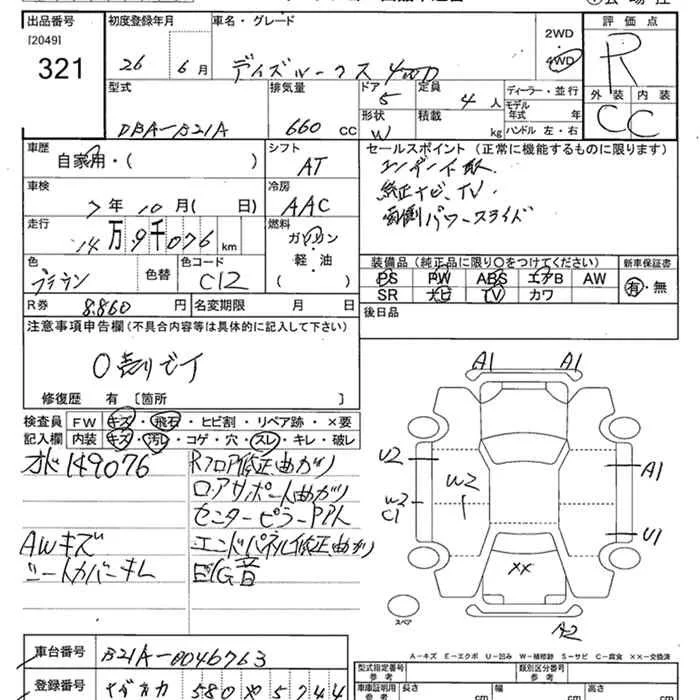 出品番号 初度登録年月 車名・グレード 2WD 評価点
[2049] 4WD R
321 26 6月 デイズルークス 4WD 外装 内装
型式 排気量 ドア 定員 ディーラー・並行 C C
5 4人 モデル年式 年
DBA-B21A 660 CC 形状 W 積載 kg ハンドル 左・右
車歴 シフト セールスポイント (正常に機能するものに限ります)
自家用・( ) AT
車検 冷房 純正ナビ、TV
7年 10月( 日) AAC 両側パワースライド
走行 燃料
14万9千076 km ガソリン・軽・油 ( )
色 色替 色コード 装備品 (純正品に限り○をつけてください) 新車保証書
ブラウン C12 PS PW ABS エアB AW 有・無
SR ナビ TV カワ
R券 8,860円 名変期限 月 日 後日品
注意事項申告欄 (不具合内容等は具体的に記入して下さい)
修復歴 有 〔箇所
検査員 FW キズ・飛石・ヒビ割・リペア跡・×要
記入欄 内装 キズ・汚レ・コゲ・穴・スレ・キレ・破レ
149076 Rフロア修正曲がり
ロアサポート曲がり
センターピラー
AWキズ エンドパネル修正曲がり
シートカバーキレ E/G音
A1 A1
U2 A1
W2 W2
C1 U1
××
スペア A2
A-キズ E-エクボ U-凹み W-補修跡 S-サビ C-腐食 ××-交換済
車台番号 B21A-0046763 型式指定番号 参考 類別区分番号 参考
登録番号 580 や 5744 車庫証明用 参考 長さ cm 幅 cm 高さ cm